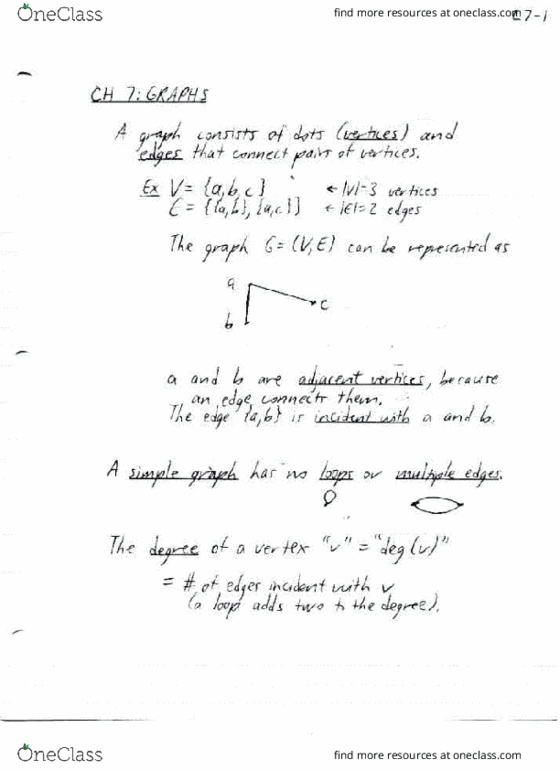 OneClass
find more resources at oneclass.com
7-1
CH 7: GRAPHS
A graph consists of dots (vertices) and
edges that connect pairs of vertices.
Ex V = {a,b,c} ← |V|=3 vertices
E = {{a,b}, {a,c}} ← |E|=2 edges
The graph G = (V,E) can be represented as
a
c
b
a and b are adjacent vertices, because
an edge connects them.
The edge {a,b} is incident with a and b.
A simple graph has no loops or multiple edges.
The degree of a vertex "v" = "deg(v)"
= # of edges incident with v
(a loop adds two to the degree).
OneClass
find more resources at oneclass.com